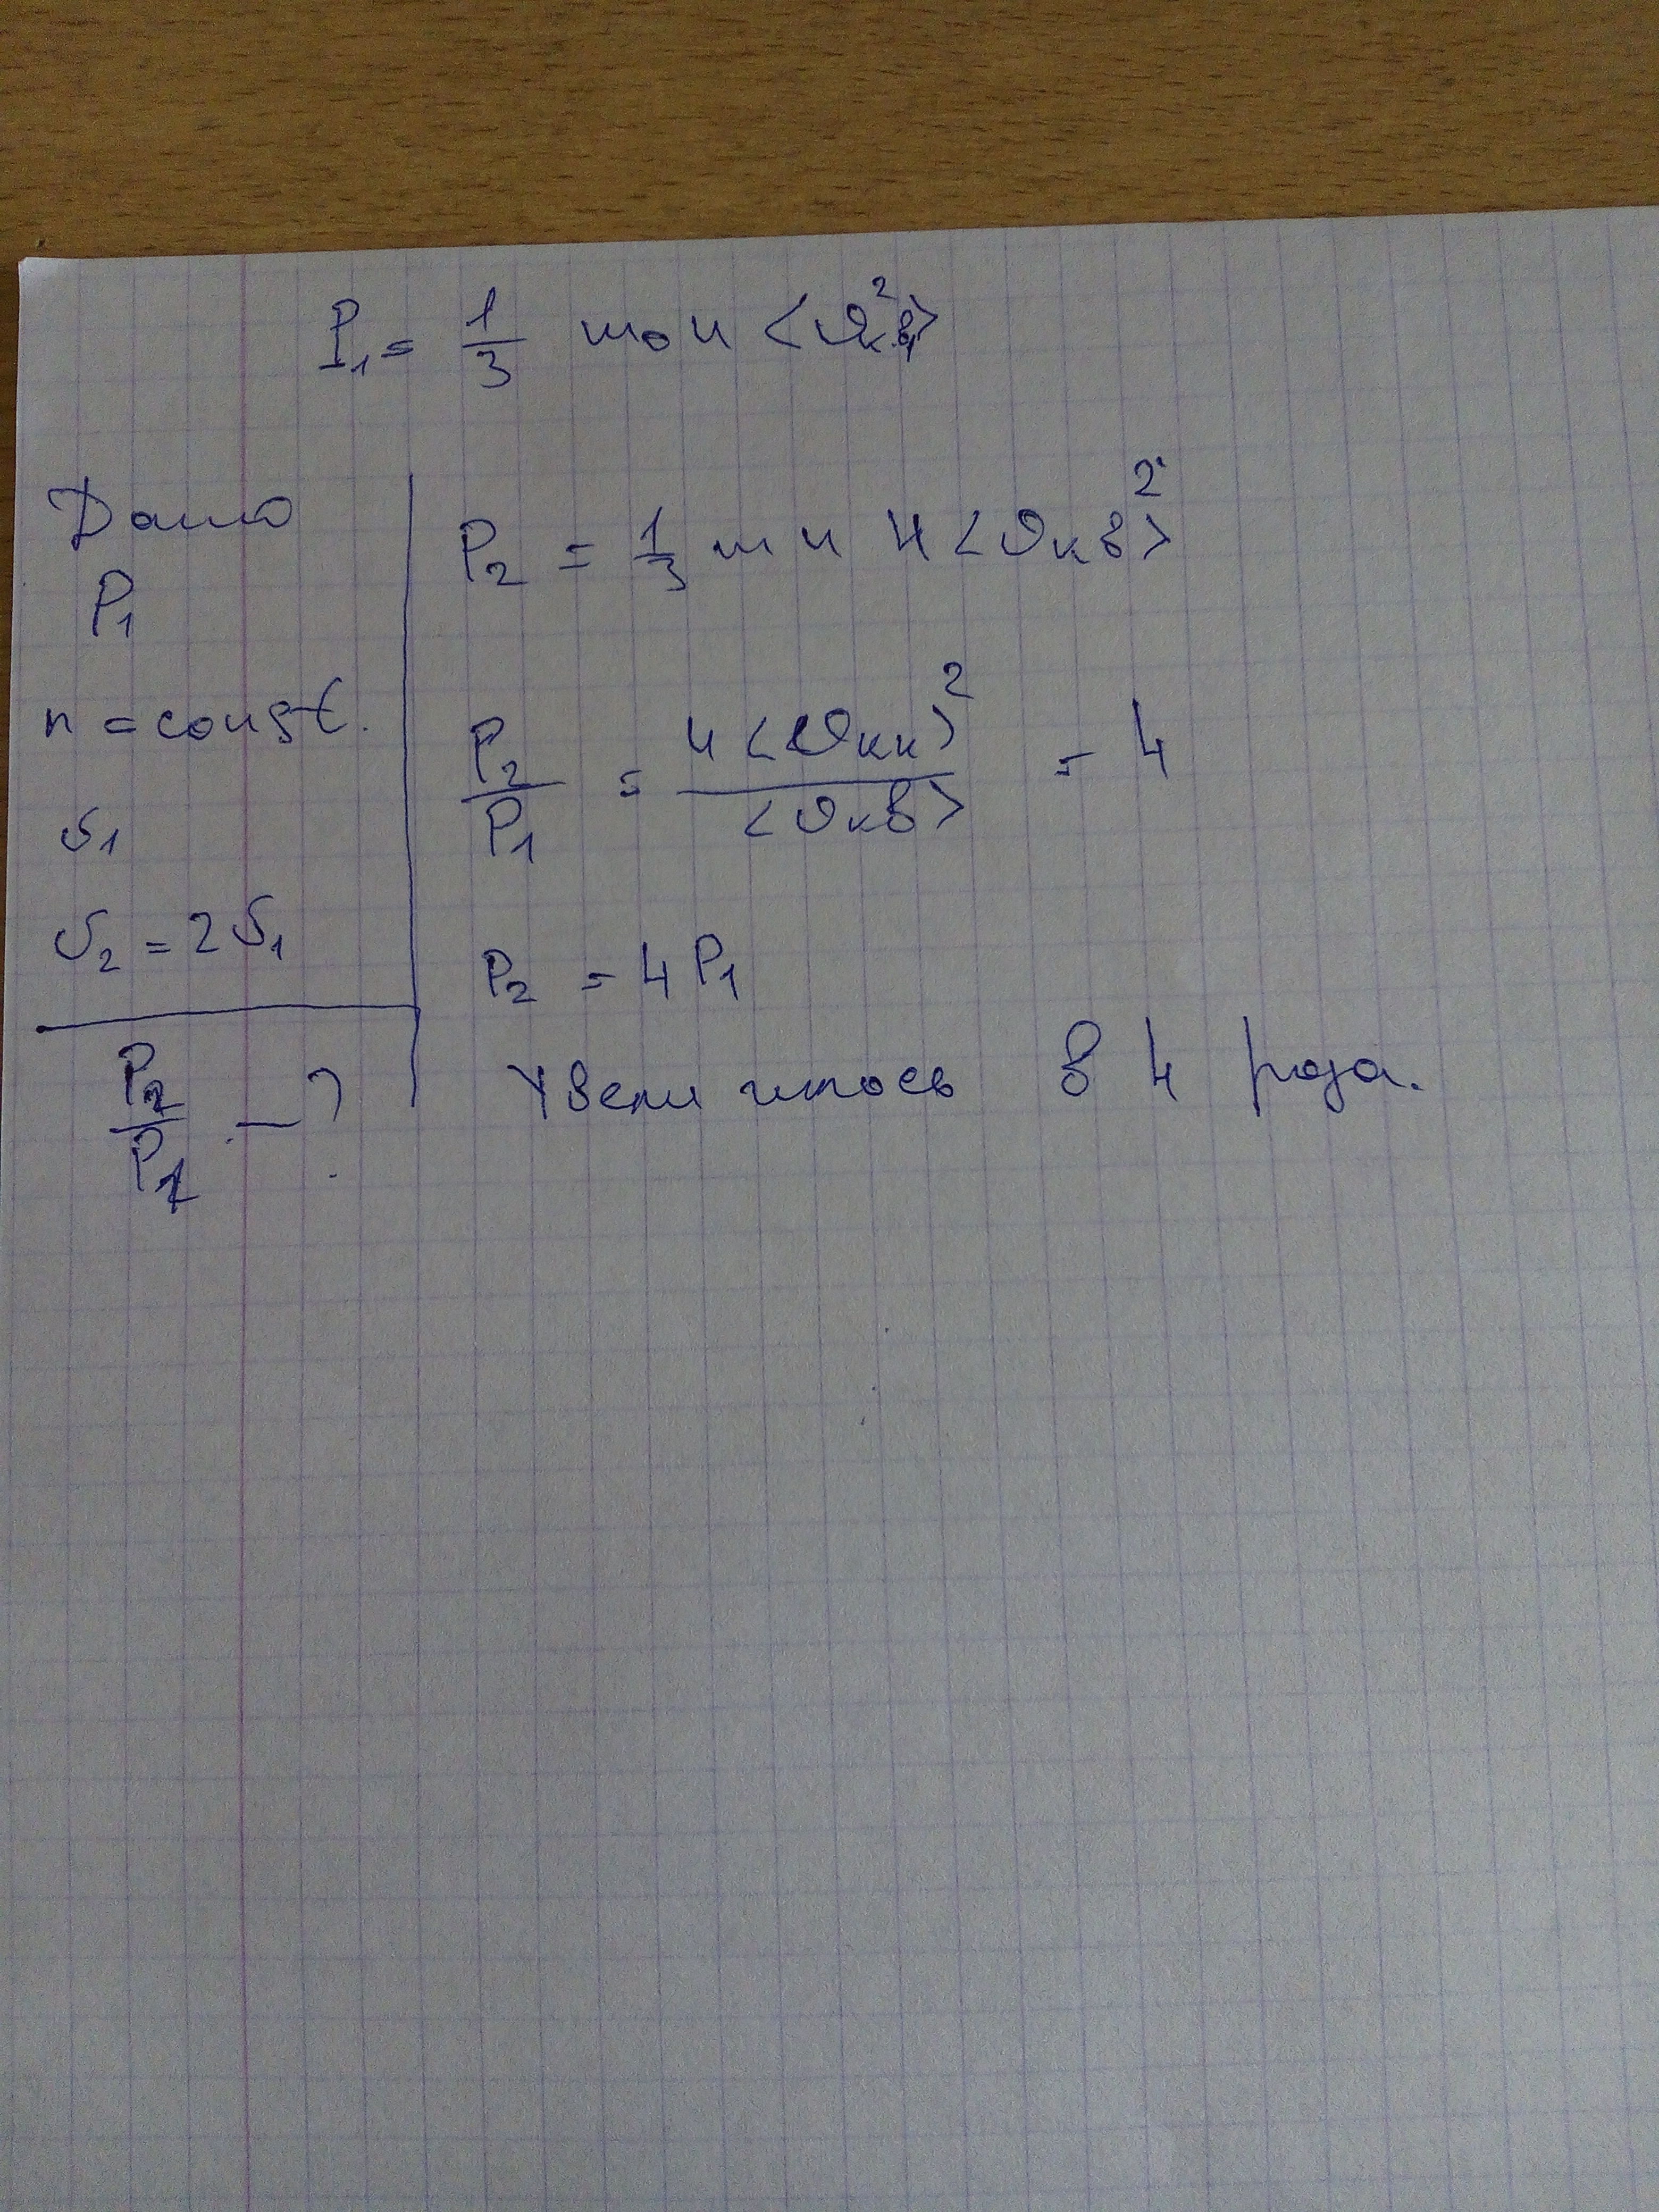 P₁ = 1/3 m₀ n <υ²кв>
Дано
P₁
n = const.
υ₁
υ₂ = 2υ₁
P₂/P₁ – ?
P₂ = 1/3 m n 4 <υкв>²
P₂/P₁ = 4<υкк>²/<υкв> = 4
P₂ = 4P₁
Увеличилось в 4 раза.